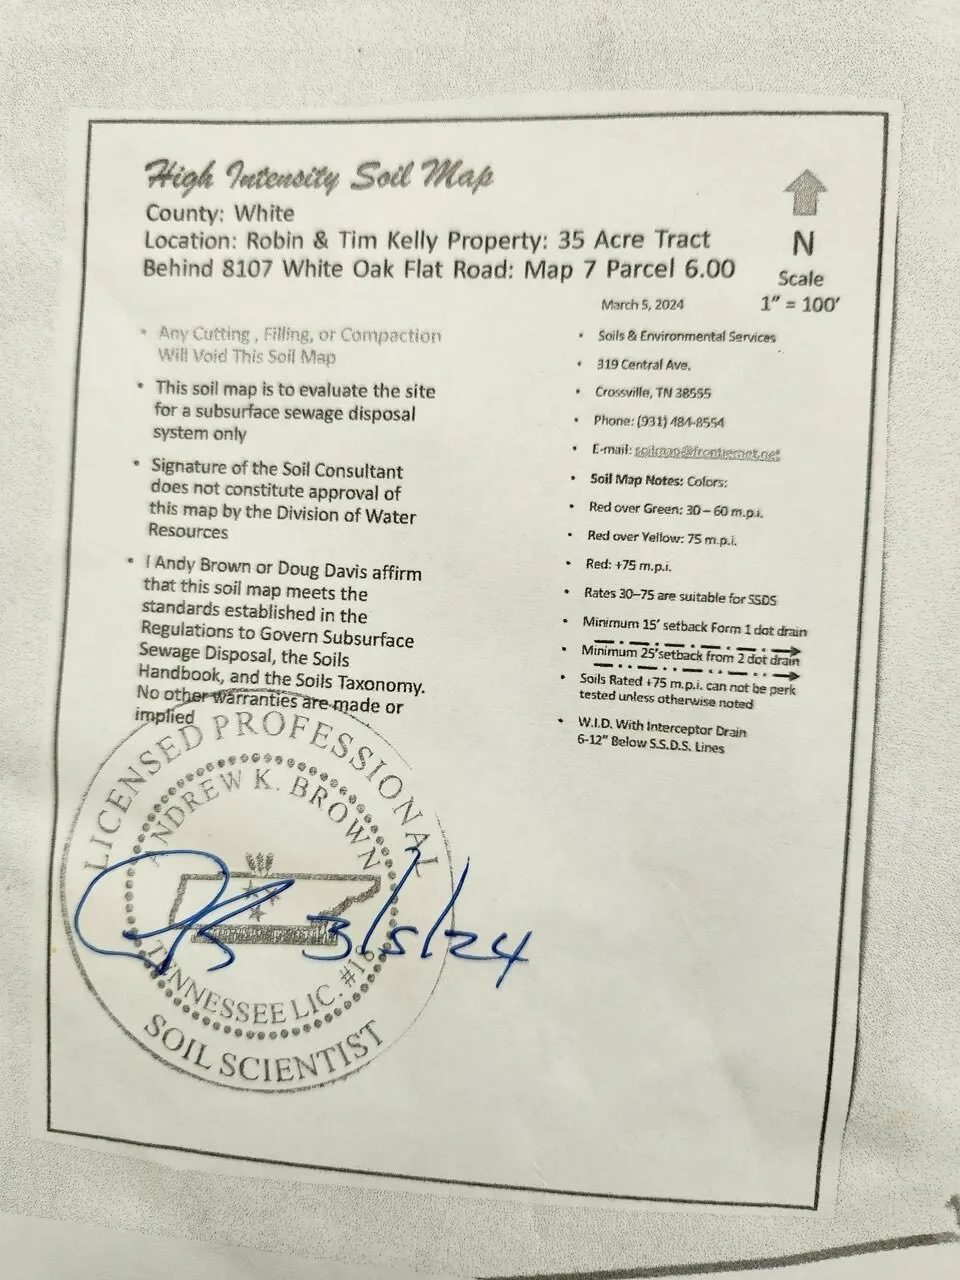 High Intensity Soil Map
County: White
Location: Robin & Tim Kelly Property: 35 Acre Tract
Behind 8107 White Oak Flat Road: Map 7 Parcel 6.00
N
Scale
1" = 100'
March 5, 2024
• Any Cutting , Filling, or Compaction
Will Void This Soil Map
• This soil map is to evaluate the site
for a subsurface sewage disposal
system only
• Signature of the Soil Consultant
does not constitute approval of
this map by the Division of Water
Resources
• I Andy Brown or Doug Davis affirm
that this soil map meets the
standards established in the
Regulations to Govern Subsurface
Sewage Disposal, the Soils
Handbook, and the Soils Taxonomy.
No other warranties are made or
implied
• Soils & Environmental Services
• 319 Central Ave.
• Crossville, TN 38555
• Phone: (931) 484-8554
• E-mail: soilman@frontiernet.net
• Soil Map Notes: Colors:
• Red over Green: 30 – 60 m.p.i.
• Red over Yellow: 75 m.p.i.
• Red: +75 m.p.i.
• Rates 30–75 are suitable for SSDS
• Minimum 15' setback Form 1 dot drain
• Minimum 25'setback from 2 dot drain
• Soils Rated +75 m.p.i. can not be perk
tested unless otherwise noted
• W.I.D. With Interceptor Drain
6-12" Below S.S.D.S. Lines
LICENSED PROFESSIONAL
ANDREW K. BROWN
TENNESSEE LIC.
SOIL SCIENTIST
3/5/24